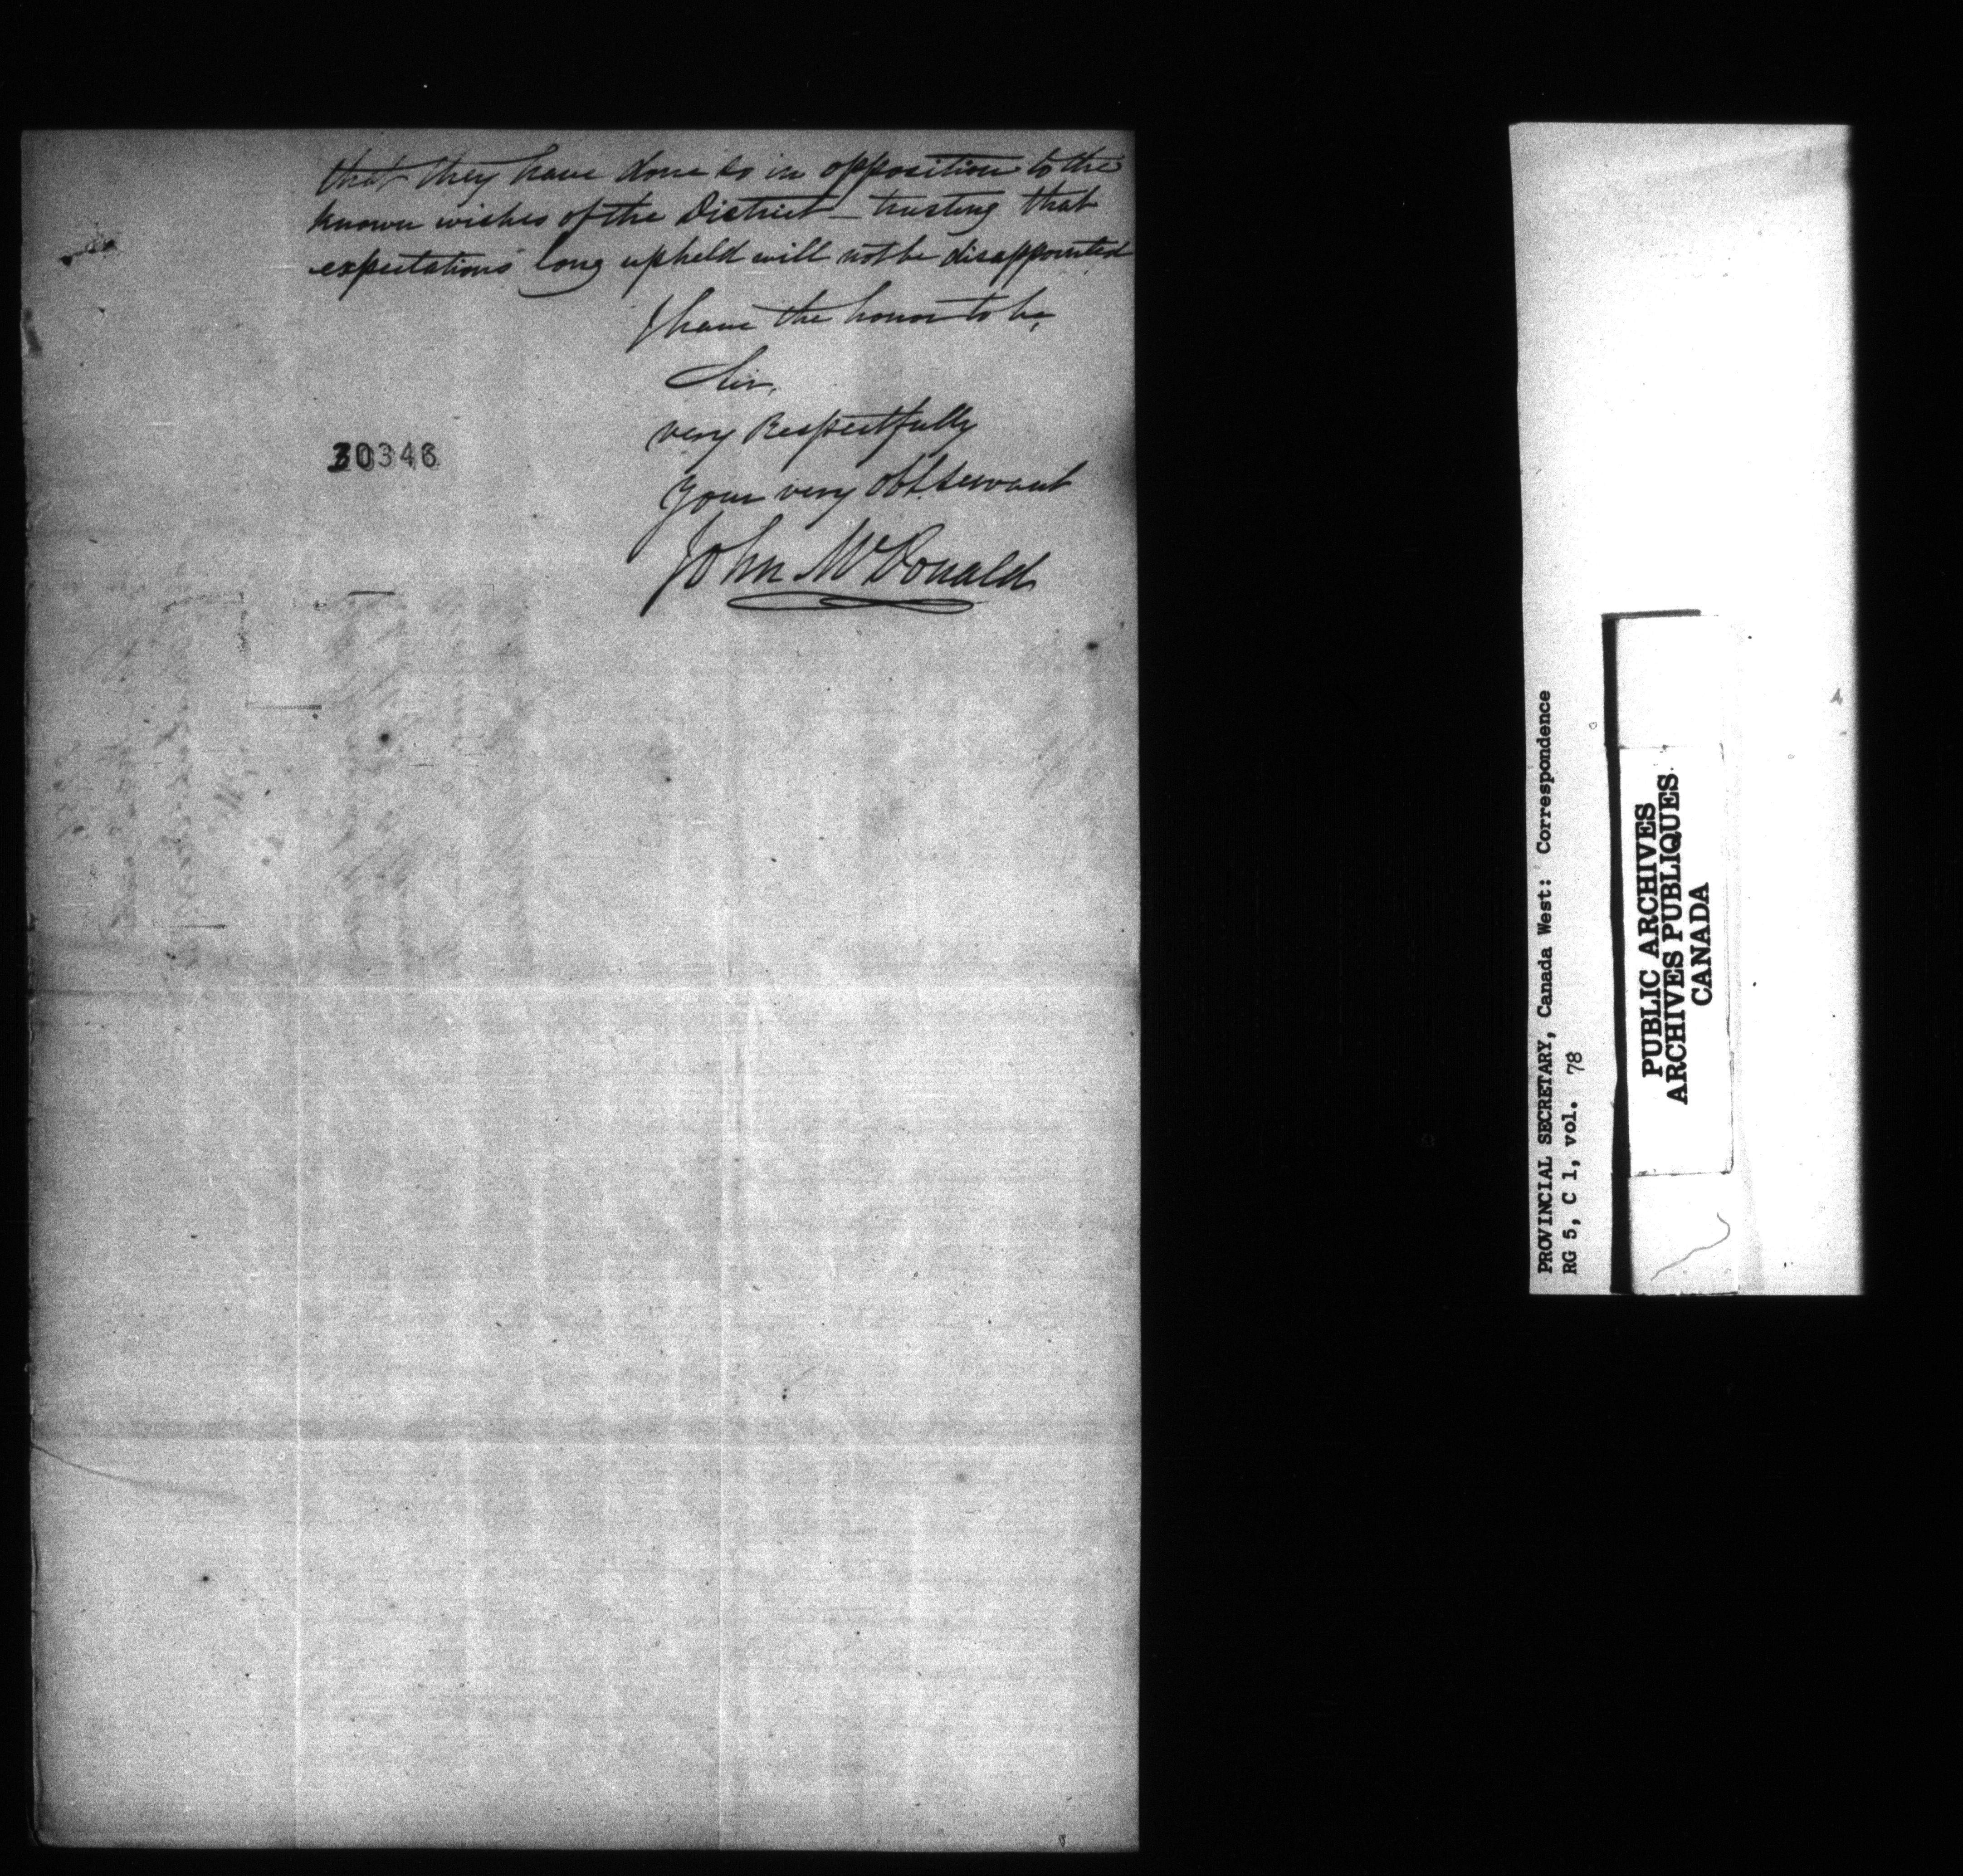 that they have done so in opposition to the
known wishes of the District – trusting that
expectations long upheld will not be disappointed
I have the honor to be,
Sir,
very Respectfully
Your very obt servant
John McDonald
30346
PROVINCIAL SECRETARY, Canada West: Correspondence
RG 5, C 1, vol. 78
PUBLIC ARCHIVES
ARCHIVES PUBLIQUES
CANADA